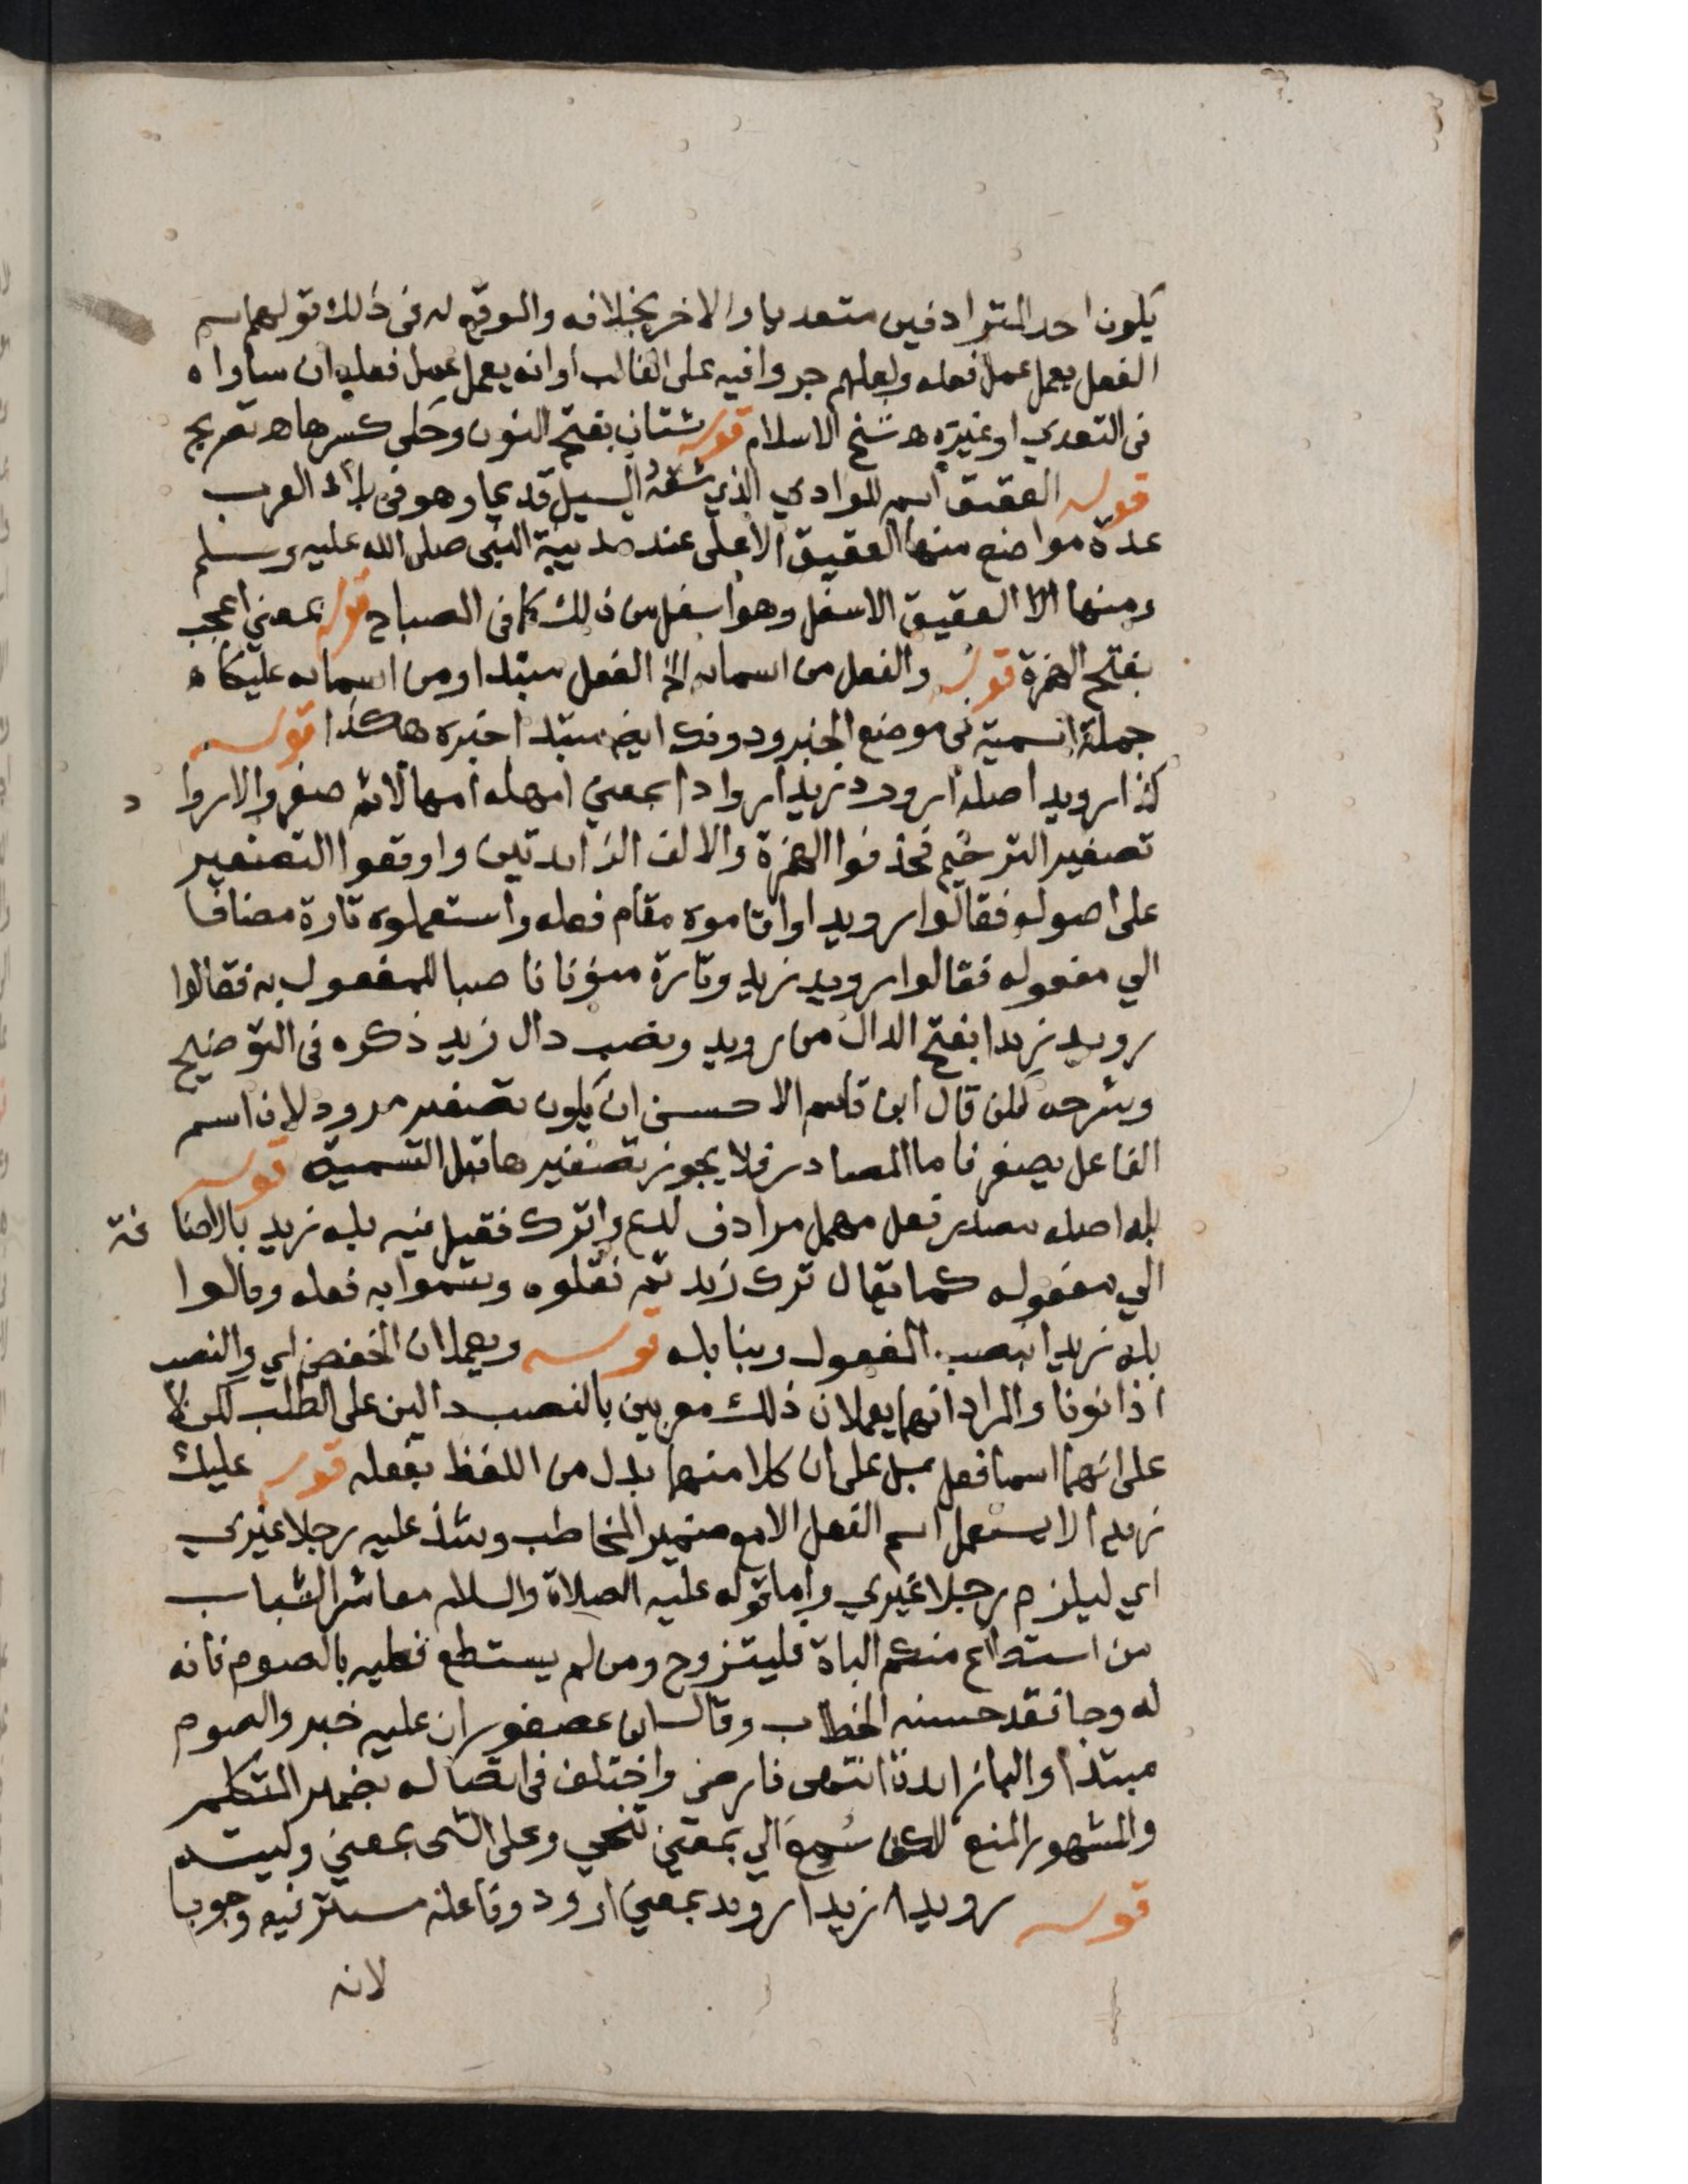 يكون احد المترادفين متعديا والاخر بخلافه والموقع له في ذلك قولهم اسم
الفعل يعمل عمل فعله ولعلهم جروا فيه على الغالب او انه يعمل عمل فعله ان ساواه
في التعدي او غيره اه شيخ الاسلام قوله شتان بفتح النون وحكى كسرها اه تصريح
قوله العقيق اسم للوادي الذي شقه السيل قديما وهو في بلاد العرب
عدة مواضع منها العقيق الاعلى عند مدينة النبي صلى الله عليه وسلم
ومنها الا العقيق الاسفل وهو اسفل من ذلك كما في المصباح قوله بمعني اعجب
بفتح الهمزة قوله والفعل من اسمائه الخ الفعل مبتدا ومن اسمائه عليكا ه
جملة اسمية في موضع الخبر ودونك ايضا مبتدا خبره هكذا قوله
كذا رويدا اصله ارود زيدا اروادا بمعني امهله امهالا ثم صغروا الاروا د
تصغير الترخيم فحذفوا الهمزة والالف الزائدتين واوقعوا التصغير
على اصوله فقالوا رويدا واقاموه مقام فعله واستعملوه تارة مضافا
الي مفعوله فقالوا رويد زيد وتارة منونا ناصبا للمفعول به فقالوا
رويد زيدا بفتح الدال من رويد ونصب دال زيد ذكره في التوضيح
وشرحه لكن قال ابن قاسم الاحسن ان يكون تصغير مرود لان اسم
الفاعل يصغر فاما المصادر فلا يجوز تصغيرها قبل التسمية قوله
بله اصله مصدر فعل مهمل مرادف لدع واترك فقيل فيه بله زيد بالاضا فة
الي مفعوله كما يقال ترك زيد ثم نقلوه وسموا به فعله وقالوا
بله زيدا بنصب المفعول وبنا بله قوله ويعملان الخفض اي والنصب
اذا نونا والمراد انهما يعملان ذلك معربين بالنصب دالين على الطلب لكن لا
على انهما اسما فعل بل على ان كلا منهما بدل من اللفظ بفعله قوله عليك
زيدا لا يستعمل اسم الفعل الا مع ضمير المخاطب وشذ عليه رجلا غيري
اي ليلزم رجلا غيري واما قوله عليه الصلاة والسلام معاشر الشباب
من استطاع منكم الباة فليتزوج ومن لم يستطع فعليه بالصوم فانه
له وجا فقد حسنه الخطاب وقال ابن عصفور ان عليه خبر والصوم
مبتدا والبا زائدة انتهى فارضي واختلف في اتصاله بضمير المتكلم
والمشهور المنع لكن سُمِعَ الي بمعني تنحي وعلى الشى بمعني وليته
قوله رويدا زيدا رويد بمعني ارود وفاعله مستتر فيه وجوبا
لانه